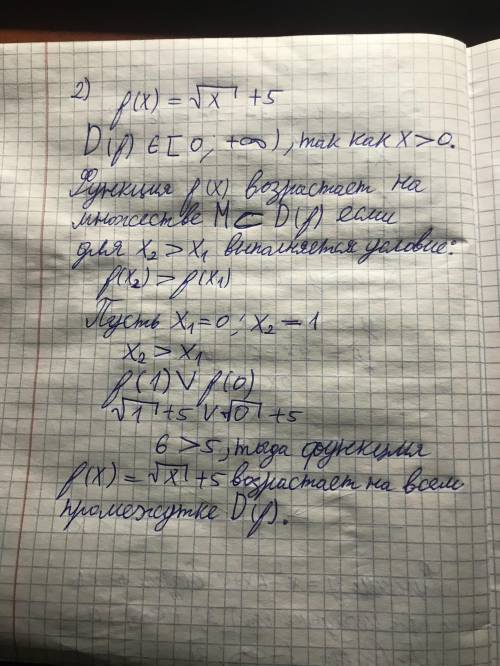 2) f(x) = √x + 5
D(f) ∈ [0; +∞), так как x > 0.
Функция f(x) возрастает на
множестве M ⊂ D(f) если
для x₂ > x₁ выполняется условие:
f(x₂) > f(x₁)
Пусть x₁ = 0; x₂ = 1
x₂ > x₁
f(1) V f(0)
√1 + 5 V √0 + 5
6 > 5, тогда функция
f(x) = √x + 5 возрастает на всем
промежутке D(f).